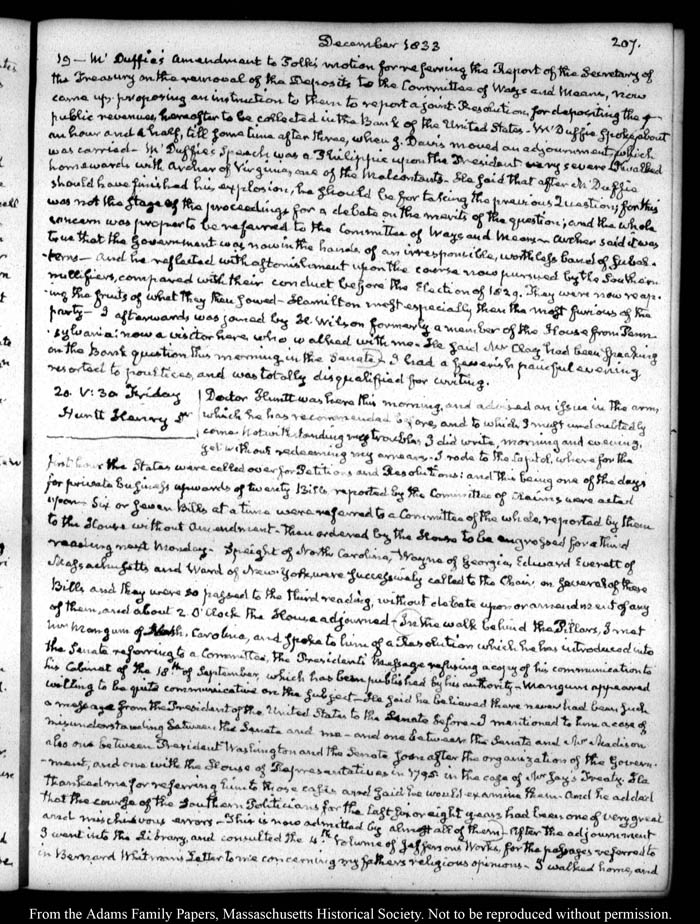 December 1833
207.
19 – Mc Duffie's Amendment to Polk's motion for referring the Report of the Secretary of
the Treasury on the removal of the Deposits to the Committee of Ways and Means, now
came up, proposing an instruction to them to report a joint Resolution, for depositing the
public revenues hereafter to be collected in the Bank of the United States – Mc Duffie spoke about
an hour and a half, till some time after three, when J. Davis moved an adjournment, which
was carried – Mc Duffie's Speech was a Philippic upon the President very severe. I walked
homewards with Archer of Virginia, one of the Malcontents – He said that after Mc Duffie
should have finished his explosion, he should be for taking the previous Question; for this
was not the stage of the proceedings for a debate on the merits of the question; and the whole
concern was proper to be referred to the Committee of Ways and Means – Archer said it was
true that the Government was now in the hands of an irresponsible, worthless band of subal-
-terns – And he reflected with astonishment upon the course now pursued by the Southern
nullifiers, compared with their conduct before the Election of 1829. They were now reap-
-ing the fruits of what they then sowed – Hamilton most especially then the most furious of the
party – I afterwards was joined by H. Wilson formerly a member of the House from Penn-
-sylvania: now a visitor here, who walked with me – He said Mr Clay had been speaking
on the Bank question this morning in the Senate – I had a feverish painful evening
resorted to poultices, and was totally disqualified for writing.
20. V: 30 Friday
Huntt Henry Dr
Doctor Huntt was here this morning, and advised an issue in the arm,
which he has recommended before, and to which I must undoubtedly
come. Notwithstanding my troubles I did write, morning and evening,
yet without redeeming my arrears. I rode to the Capitol, where for the
first hour the States were called over for Petitions and Resolutions: and this being one of the days
for private business upwards of twenty Bills reported by the Committee of Claims were acted
upon – Six or seven Bills at a time were referred to a Committee of the whole, reported by them
to the House without Amendment – Then ordered by the House to be engrossed for a third
reading next Monday – Speight of North Carolina, Wayne of Georgia, Edward Everett of
Massachusetts and Ward of New York, were successively called to the Chair, on several of these
Bills and they were so passed to the third reading, without debate upon or amendment of any
of them, and about 2. O'Clock the House adjourned – In the walk behind the Pillars, I met
Mr Mangum of North Carolina, and spoke to him of a Resolution which he has introduced into
the Senate referring to a Committee, the President's Message refusing a copy of his communication to
his Cabinet of the 18th of September, which has been published by his authority – Mangum appeared
willing to be quite communicative on the subject – He said he believed there never had been such
a message from the President of the United States to the Senate before – I mentioned to him a case of
misunderstanding between the Senate and me – and one between the Senate and Mr Madison
also one between President Washington and the Senate soon after the organization of the Govern-
-ment, and one with the House of Representatives in 1795 in the case of Mr Jay's Treaty. He
thanked me for referring him to those cases and said he would examine them. And he added
that the course of the Southern Politicians for the last six or eight years had been one of very great
and mischievous errors – This is now admitted by almost all of them – After the adjournment
I went into the Library, and consulted the 4th Volume of Jefferson's Works, for the passages referred to
in Bernard Whitman's Letter to me concerning my father's religious opinions – I walked home, and
From the Adams Family Papers, Massachusetts Historical Society. Not to be reproduced without permission.